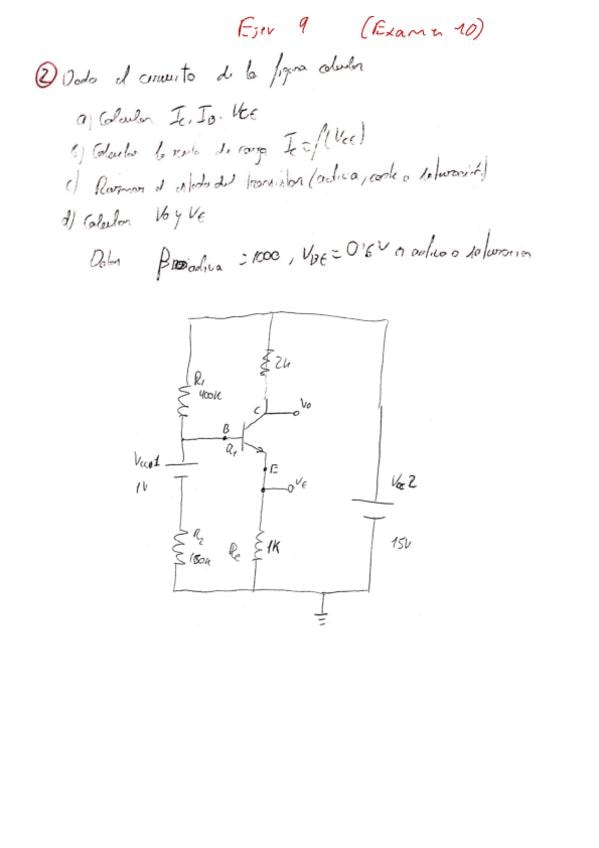 Ejer 9 (Examen 10)
② Dado el circuito de la figura calcular
a) Calcular Ic, IB. VCE
b) Calcular la recta de carga Ic = f(VCE)
c) Razonar el estado del transistor (activa, corte o saturación)
d) Calcular Vo y VE
Datos β activa = 1000, VBE = 0'6V en activa o saturacion
2k
R1
400k
C
Vo
B
Q1
Vcc1
E
VE
Vcc2
1V
R2
Re
1K
15V